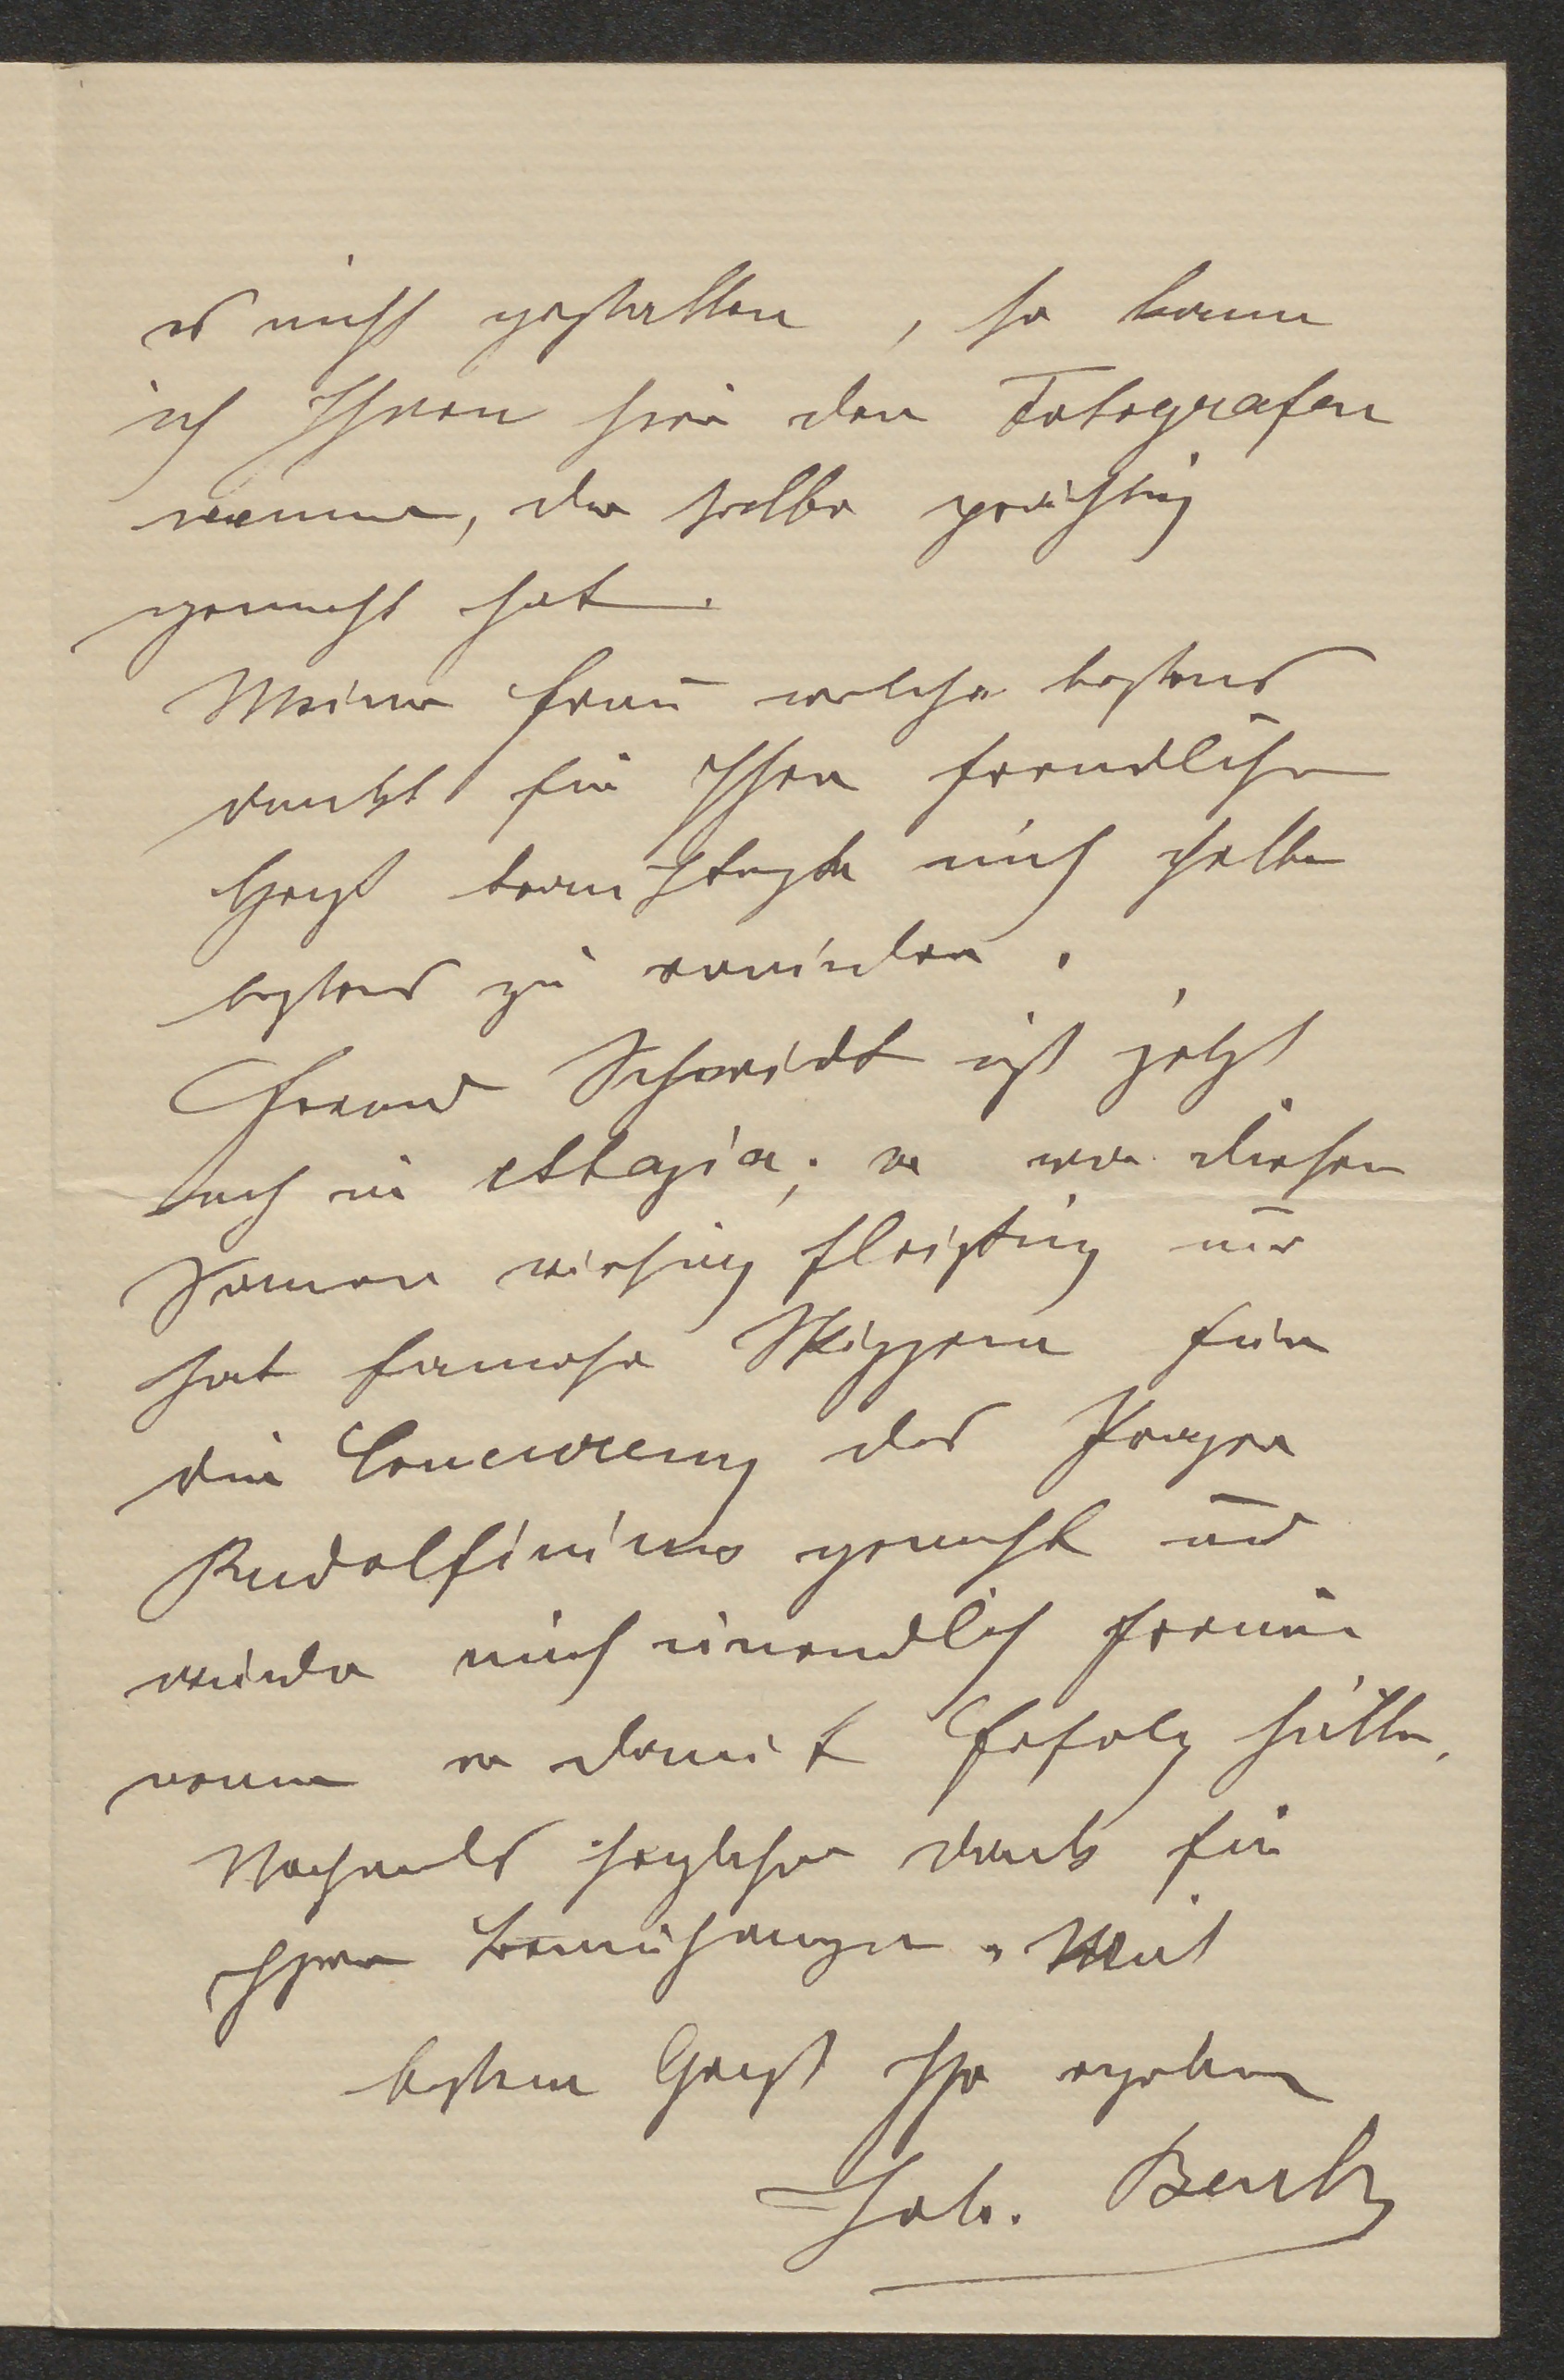 es nicht gestatten, so kann
ich Ihnen hier den Fotografen
nennen, der selbe prächtig
gemacht hat.
Meine Frau welche bestens
dankt für Ihren freundlichen
Gruß beauftragte mich selben
bestens zu erwiedern.
Freund Schmidt ist jetzt
auch in Abbazia; er war diesen
Sommer riesig fleißig und
hat famose Skizzen für
die Concurrenz des Prager
Rudolfinums gemacht und
würde mich unendlich freuen
wenn er damit Erfolg hätte.
Nochmals herzlichen Dank für
Ihre Bemühungen. Mit
bestem Gruß Ihr ergebener
Joh. Benk